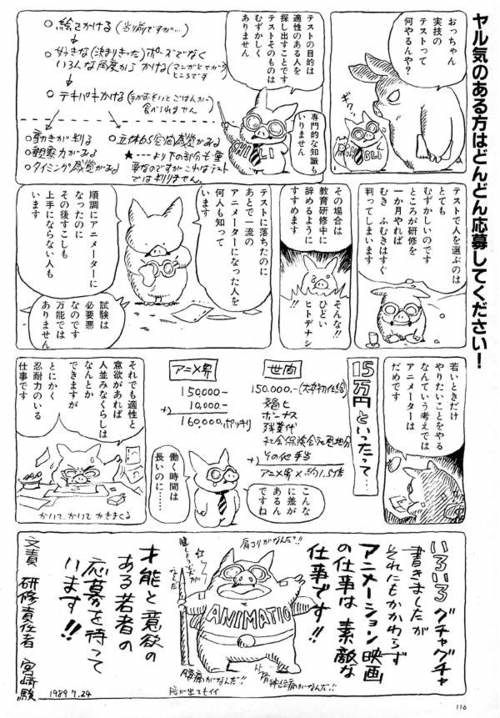 ヤル気のある方はどんどん応募してください!
おっちゃん
実技の
テストって
何やるんや?
テストの目的は
適性のある人を
探し出すことです
むずかしく
テストそのものは
専門的な知識も
いりません
○絵でかける(当り前ですが…)
○好きな(決まりきった)ポーズでなく
いろんな角度からかける
○テキパキかける
○動きが判る
○観察力がある
○タイミング感覚がある
○立体的空間感覚がある
テストで人を選ぶのは
とても
むずかしいのです
ところが研修を
一か月やれば
むき ふむきはすぐ
判ってしまいます
その場合は
教育研修中に
辞めるように
すすめます
そんな!!
ひどい
ヒトデナシ
テストに落ちたのに
あとで一流の
アニメーターになった人を
何人も知って
います
順調にアニメーターに
なったのに
その後すこしも
上手にならない人も
います
試験は
必要悪
なのです
万能では
ありません
若いときだけ
やりたいことをやる
なんていう考えでは
アニメーターは
だめです
15万円といったって…
世間
150.000-(大卒初任給)
ボーナス
残業代
+)その他手当
アニメ界
150,000-
+) 10,000-
160,000.ポッキリ
こんな
に差が
あるん
ですね
働く時間は
長いのに…
それでも適性と
意欲があれば
人並みなくらしは
なんとか
できますが
とにかく
忍耐力のいる
仕事です
かいて、かいて
いろいろグチャグチャ
書きましたが
それにもかかわらず
アニメーション映画
の仕事は素敵な
仕事です!!
肩コリがなんだ!!
ANIMATIO
腰痛がなんだ!!
才能と意欲の
ある若者の
応募を待って
います!!
文責 研修責任者 宮崎駿
1989 7.24
116